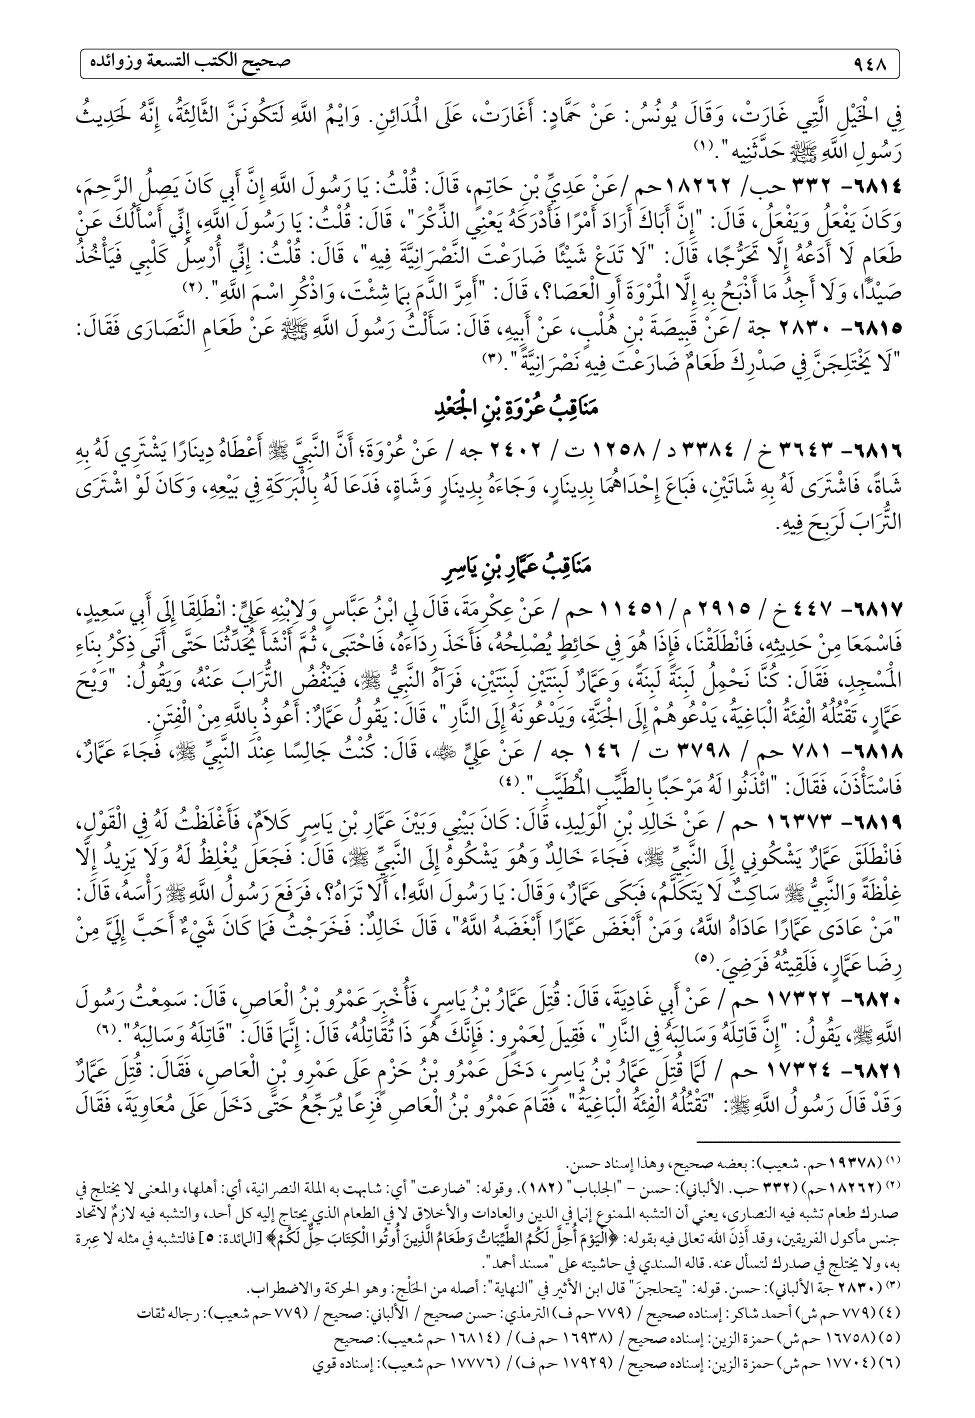 ٩٤٨ صحيح الكتب التسعة وزوائده
فِي الْخَيْلِ الَّتِي غَارَتْ، وَقَالَ يُونُسُ: عَنْ حَمَّادٍ: أَغَارَتْ، عَلَى الْمَدَائِنِ. وَايْمُ اللَّهِ لَتَكُونَنَّ الثَّالِثَةُ، إِنَّهُ لَحَدِيثُ
رَسُولِ اللَّهِ ﷺ حَدَّثَنِيهِ".(١)
٦٨١٤- ٣٣٢ حب/ ١٨٢٦٢حم /عَنْ عَدِيِّ بْنِ حَاتِمٍ، قَالَ: قُلْتُ: يَا رَسُولَ اللَّهِ إِنَّ أَبِي كَانَ يَصِلُ الرَّحِمَ،
وَكَانَ يَفْعَلُ وَيَفْعَلُ، قَالَ: "إِنَّ أَبَاكَ أَرَادَ أَمْرًا فَأَدْرَكَهُ يَعْنِي الذِّكْرَ"، قَالَ: قُلْتُ: يَا رَسُولَ اللَّهِ، إِنِّي أَسْأَلُكَ عَنْ
طَعَامٍ لَا أَدَعُهُ إِلَّا تَحَرُّجًا، قَالَ: "لَا تَدَعْ شَيْئًا ضَارَعْتَ النَّصْرَانِيَّةَ فِيهِ"، قَالَ: قُلْتُ: إِنِّي أُرْسِلُ كَلْبِي فَيَأْخُذُ
صَيْدًا، وَلَا أَجِدُ مَا أَذْبَحُ بِهِ إِلَّا الْمَرْوَةَ أَوِ الْعَصَا؟، قَالَ: "أَمِرَّ الدَّمَ بِمَا شِئْتَ، وَاذْكُرِ اسْمَ اللَّهِ".(٢)
٦٨١٥- ٢٨٣٠ جة /عَنْ قَبِيصَةَ بْنِ هُلْبٍ، عَنْ أَبِيهِ، قَالَ: سَأَلْتُ رَسُولَ اللَّهِ ﷺ عَنْ طَعَامِ النَّصَارَى فَقَالَ:
"لَا يَخْتَلِجَنَّ فِي صَدْرِكَ طَعَامٌ ضَارَعْتَ فِيهِ نَصْرَانِيَّةً".(٣)
مَنَاقِبُ عُرْوَةَ بْنِ الْجَعْدِ
٦٨١٦- ٣٦٤٣ خ / ٣٣٨٤ د/ ١٢٥٨ ت / ٢٤٠٢ جه / عَنْ عُرْوَةَ؛ أَنَّ النَّبِيَّ ﷺ أَعْطَاهُ دِينَارًا يَشْتَرِي لَهُ بِهِ
شَاةً، فَاشْتَرَى لَهُ بِهِ شَاتَيْنِ، فَبَاعَ إِحْدَاهُمَا بِدِينَارٍ، وَجَاءَهُ بِدِينَارٍ وَشَاةٍ، فَدَعَا لَهُ بِالْبَرَكَةِ فِي بَيْعِهِ، وَكَانَ لَوْ اشْتَرَى
التُّرَابَ لَرَبِحَ فِيهِ.
مَنَاقِبُ عَمَّارِ بْنِ يَاسِرٍ
٦٨١٧- ٤٤٧ خ / ٢٩١٥ م/ ١١٤٥١ حم / عَنْ عِكْرِمَةَ، قَالَ لِي ابْنُ عَبَّاسٍ وَلِابْنِهِ عَلِيٍّ: انْطَلِقَا إِلَى أَبِي سَعِيدٍ،
فَاسْمَعَا مِنْ حَدِيثِهِ، فَانْطَلَقْنَا، فَإِذَا هُوَ فِي حَائِطٍ يُصْلِحُهُ، فَأَخَذَ رِدَاءَهُ، فَاحْتَبَى، ثُمَّ أَنْشَأَ يُحَدِّثُنَا حَتَّى أَتَى ذِكْرُ بِنَاءِ
الْمَسْجِدِ، فَقَالَ: كُنَّا نَحْمِلُ لَبِنَةً لَبِنَةً، وَعَمَّارٌ لَبِنَتَيْنِ لَبِنَتَيْنِ، فَرَآهُ النَّبِيُّ ﷺ، فَيَنْفُضُ التُّرَابَ عَنْهُ، وَيَقُولُ: "وَيْحَ
عَمَّارٍ، تَقْتُلُهُ الْفِئَةُ الْبَاغِيَةُ، يَدْعُوهُمْ إِلَى الْجَنَّةِ، وَيَدْعُونَهُ إِلَى النَّارِ"، قَالَ: يَقُولُ عَمَّارٌ: أَعُوذُ بِاللَّهِ مِنْ الْفِتَنِ.
٦٨١٨- ٧٨١ حم / ٣٧٩٨ ت / ١٤٦ جه / عَنْ عَلِيٍّ ﵁، قَالَ: كُنْتُ جَالِسًا عِنْدَ النَّبِيِّ ﷺ، فَجَاءَ عَمَّارٌ،
فَاسْتَأْذَنَ، فَقَالَ: "ائْذَنُوا لَهُ مَرْحَبًا بِالطَّيِّبِ الْمُطَيَّبِ".(٤)
٦٨١٩- ١٦٣٧٣ حم / عَنْ خَالِدِ بْنِ الْوَلِيدِ، قَالَ: كَانَ بَيْنِي وَبَيْنَ عَمَّارِ بْنِ يَاسِرٍ كَلَامٌ، فَأَغْلَظْتُ لَهُ فِي الْقَوْلِ،
فَانْطَلَقَ عَمَّارٌ يَشْكُونِي إِلَى النَّبِيِّ ﷺ، فَجَاءَ خَالِدٌ وَهُوَ يَشْكُوهُ إِلَى النَّبِيِّ ﷺ، قَالَ: فَجَعَلَ يُغْلِظُ لَهُ وَلَا يَزِيدُ إِلَّا
غِلْظَةً وَالنَّبِيُّ ﷺ سَاكِتٌ لَا يَتَكَلَّمُ، فَبَكَى عَمَّارٌ، وَقَالَ: يَا رَسُولَ اللَّهِ!، أَلَا تَرَاهُ؟، فَرَفَعَ رَسُولُ اللَّهِ ﷺ رَأْسَهُ، قَالَ:
"مَنْ عَادَى عَمَّارًا عَادَاهُ اللَّهُ، وَمَنْ أَبْغَضَ عَمَّارًا أَبْغَضَهُ اللَّهُ"، قَالَ خَالِدٌ: فَخَرَجْتُ فَمَا كَانَ شَيْءٌ أَحَبَّ إِلَيَّ مِنْ
رِضَا عَمَّارٍ، فَلَقِيتُهُ فَرَضِيَ.(٥)
٦٨٢٠- ١٧٣٢٢ حم / عَنْ أَبِي غَادِيَةَ، قَالَ: قُتِلَ عَمَّارُ بْنُ يَاسِرٍ، فَأُخْبِرَ عَمْرُو بْنُ الْعَاصِ، قَالَ: سَمِعْتُ رَسُولَ
اللَّهِ ﷺ، يَقُولُ: "إِنَّ قَاتِلَهُ وَسَالِبَهُ فِي النَّارِ"، فَقِيلَ لِعَمْرٍو: فَإِنَّكَ هُوَ ذَا تُقَاتِلُهُ، قَالَ: إِنَّمَا قَالَ: "قَاتِلَهُ وَسَالِبَهُ".(٦)
٦٨٢١- ١٧٣٢٤ حم / لَمَّا قُتِلَ عَمَّارُ بْنُ يَاسِرٍ، دَخَلَ عَمْرُو بْنُ حَزْمٍ عَلَى عَمْرِو بْنِ الْعَاصِ، فَقَالَ: قُتِلَ عَمَّارٌ
وَقَدْ قَالَ رَسُولُ اللَّهِ ﷺ: "تَقْتُلُهُ الْفِئَةُ الْبَاغِيَةُ"، فَقَامَ عَمْرُو بْنُ الْعَاصِ فَزِعًا يُرَجِّعُ حَتَّى دَخَلَ عَلَى مُعَاوِيَةَ، فَقَالَ
(١) (١٩٣٧٨حم. شعيب): بعضه صحيح، وهذا إسناد حسن.
(٢) (١٨٢٦٢حم) (٣٣٢ حب. الألباني): حسن – "الجلباب" (١٨٢). وقوله: "ضارعت" أي: شابهت به الملة النصرانية، أي: أهلها، والمعنى لا يختلج في
صدرك طعام تشبه فيه النصارى، يعني أن التشبه الممنوع إنما في الدين والعادات والأخلاق لا في الطعام الذي يحتاج إليه كل أحد، والتشبه فيه لازمٌ لاتحاد
جنس مأكول الفريقين، وقد أَذِنَ الله تعالى فيه بقوله: ﴿الْيَوْمَ أُحِلَّ لَكُمُ الطَّيِّبَاتُ وَطَعَامُ الَّذِينَ أُوتُوا الْكِتَابَ حِلٌّ لَكُمْ﴾ [المائدة: ٥] فالتشبه في مثله لا عِبرة
به، ولا يختلج في صدرك لتسأل عنه. قاله السندي في حاشيته على "مسند أحمد".
(٣) (٢٨٣٠ جة الألباني): حسن. قوله: "يتحلجنَ" قال ابن الأثير في "النهاية": أصله من الحَلْج: وهو الحركة والاضطراب.
(٤) (٧٧٩ حم ش) أحمد شاكر: إسناده صحيح / (٧٧٩ حم ف) الترمذي: حسن صحيح / الألباني: صحيح / (٧٧٩ حم شعيب): رجاله ثقات
(٥) (١٦٧٥٨ حم ش) حمزة الزين: إسناده صحيح / (١٦٩٣٨ حم ف)/ (١٦٨١٤ حم شعيب): صحيح
(٦) (١٧٧٠٤ حم ش) حمزة الزين: إسناده صحيح / (١٧٩٢٩ حم ف)/ (١٧٧٧٦ حم شعيب): إسناده قوي